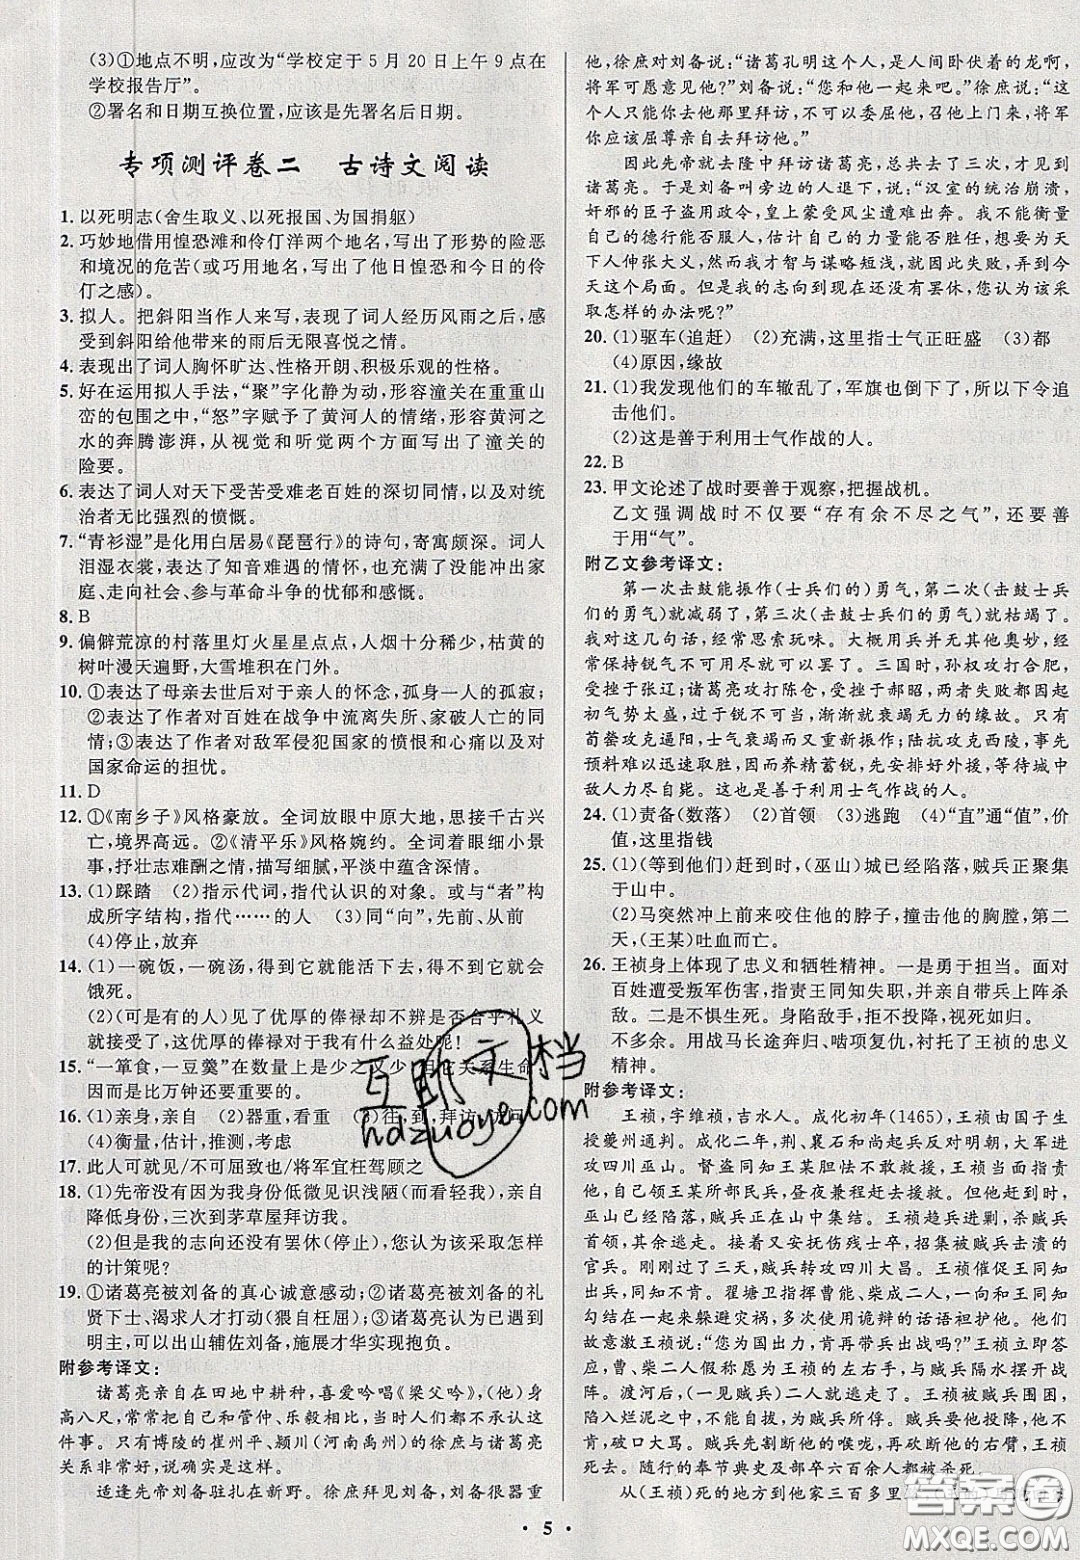 (3)①地点不明,应改为“学校定于5月20日上午9点在
学校报告厅”。
②署名和日期互换位置,应该是先署名后日期。
专项测评卷二 古诗文阅读
1. 以死明志(舍生取义、以死报国、为国捐躯)
2. 巧妙地借用惶恐滩和伶仃洋两个地名,写出了形势的险恶
和境况的危苦(或巧用地名,写出了他昔日惶恐和今日的伶
仃之感)。
3. 拟人。把斜阳当作人来写,表现了词人经历风雨之后,感
受到斜阳给他带来的雨后无限喜悦之情。
4. 表现出了词人胸怀旷达、性格开朗、积极乐观的性格。
5. 好在运用拟人手法,“聚”字化静为动,形容潼关在重重山
峦的包围之中,“怒”字赋予了黄河人的情绪,形容黄河之
水的奔腾澎湃,从视觉和听觉两个方面写出了潼关的
险要。
6. 表达了词人对天下受苦受难老百姓的深切同情,以及对统
治者无比强烈的愤慨。
7. “青衫湿”是化用白居易《琵琶行》的诗句,寄寓颇深。词人
泪湿衣裳,表达了知音难遇的情怀,也有不能冲出家
庭、走向社会、参与革命斗争的忧郁和感慨。
8. B
9. 偏僻荒凉的村落里灯火星星点点,人烟十分稀少,枯黄的
树叶漫天遍野,大雪堆积在门外。
10. ①表达了母亲去世后对于亲人的怀念,孤身一人的孤寂;
②表达了作者对百姓在战争中流离失所、家破人亡的同
情;③表达了作者对敌军侵犯国家的愤恨和心痛以及对
对国家命运的担忧。
11. D
12. ①《南乡子》风格豪放。全词放眼中原大地,思接千古兴
亡,境界高远。②《清平乐》风格婉约。全词着眼细小景
事,抒壮志难酬之情,描写细腻,平淡中蕴含深情。
13. (1)踩踏 (2)指示代词,指代认识的对象。或与“者”构
成所字结构,指代……的人 (3)同“向”,先前、从前
(4)停止,放弃
14. (1)一碗饭,一碗汤,得到它就能活下去,得不到它就会
饿死。
(2)(可是有的人)见了优厚的俸禄却不辨是否合乎礼义
就接受了,这优厚的俸禄对于我有什么益处呢!
15. “一箪食,一豆羹”在数量上是少之又少,但它关系生命,
因而是比万钟还要重要的。
16. (1)亲身,亲自 (2)器重,看重 (3)往,到,拜访,访问
(4)衡量,估计,推测,考虑
17. 此人可就见/不可屈致也/将军宜枉驾顾之
18. (1)先帝没有因为我身份低微见识浅陋(而看轻我),亲自
降低身份,三次到茅草屋拜访我。
(2)但是我的志向还没有罢休(停止),您认为该采取怎样
的计策呢?
19. ①诸葛亮被刘备的真心诚意感动;②诸葛亮被刘备的礼
贤下士、渴求人才打动(猥自枉屈);③诸葛亮认为已遇到
明主,可以出山辅佐刘备,施展才华实现抱负。
附参考译文:
诸葛亮亲自在田地中耕种,喜爱吟唱《梁父吟》,(他)身
高八尺,常常把自己和管仲、乐毅相比,当时人们都不承认这
件事。只有博陵的崔州平、颍川(河南禹州)的徐庶与诸葛亮
关系非常好,说确实是这样。
适逢先帝刘备驻扎在新野。徐庶拜见刘备,刘备很器重
他,徐庶对刘备说:“诸葛孔明这个人,是人间卧伏着的龙啊,
将军可愿意见他?”刘备说:“您和他一起来吧。”徐庶说:“这
个人只能你去他那里拜访,不可以委屈他,召他上门来,将军
你应该屈尊亲自去拜访他。”
因此先帝就去隆中拜访诸葛亮,总共去了三次,才见到
诸葛亮。于是刘备叫旁边的人退下,说:“汉室的统治崩溃,
奸邪的臣子盗用政令,皇上蒙受风尘遭难出奔。我不能衡量
自己的德行能否服人,估计自己的力量能否胜任,想要为天
下人伸张大义,然而我才智与谋略短浅,就因此失败,弄到今
天这个局面。但是我的志向到现在还没有罢休,您认为该采
取怎样的办法呢?”
20. (1)驱车(追赶) (2)充满,这里指士气正旺盛 (3)都
(4)原因,缘故
21. (1)我发现他们的车辙乱了,军旗也倒下了,所以下令追
击他们。
(2)这是善于利用士气作战的人。
22. B
23. 甲文论述了战时要善于观察,把握战机。
乙文强调战时不仅要“存有余不尽之气”,还要善
于用“气”。
附乙文参考译文:
第一次击鼓能振作(士兵们的)勇气,第二次(击鼓士兵
们的勇气)就减弱了,第三次(击鼓士兵们的勇气)就枯竭了。
我对这几句话,经常思索玩味。大概用兵并无其他奥妙,经
常保持锐气不可用尽就可以了。三国时,孙权攻打合肥,
受挫于张辽;诸葛亮攻打陈仓,受挫于郝昭,两者失败都是因起
初气势太盛,过于锐不可当,渐渐就衰竭无力的缘故。只有
荀罃攻克逼阳,士气衰竭而又重新振作;陆抗攻克西陵,事先
预料难以迅速取胜,因而养精蓄锐,先安排好外援,等待城中
敌人力尽自毙。这也是善于利用士气作战的人。
24. (1)责备(数落) (2)首领 (3)逃跑 (4)“直”通“值”,价
值,这里指钱
25. (1)(等到他们)赶到时,(巫山)城已经陷落,贼兵正聚集
于山中。
(2)马突然冲上前来咬住他的脖子,撞击他的胸膛,第二
天,(王某)吐血而亡。
26. 王祯身上体现了忠义和牺牲精神。一是勇于担当。面对
百姓遭受叛军伤害,指责王同知失职,并亲自带兵上阵杀
敌。二是不惧生死。身陷敌手,拒不投降,视死如归。
不多余。用战马长途奔归、啮项复仇,衬托了王祯的忠义
精神。
附参考译文:
王祯,字维祯,吉水人。成化初年(1465),王祯由国子生
授夔州通判。成化二年,荆、襄石和尚起兵反对明朝,大军进
攻四川巫山。督盗同知王某胆怯不敢救援,王祯当面指责
他,自己领王某所部民兵,昼夜兼程赶去援救。但他赶到时,
巫山已经陷落,贼兵正在山中集结。王祯趋兵进剿,杀贼兵
首领,其余贼兵逃走。接着又安抚伤残士卒,招集被贼兵击溃
官兵。刚刚过了三天,贼兵再攻四川大昌。王祯催促王同知
进兵,王同知不肯。瞿塘卫指挥曹能、柴成二人,一向和王同知
勾结在一起来躲避灾祸,多次用诡辩的话语袒护他。他们
故意激王祯说:“您为国出力,肯再带兵出战吗?”王祯立即答
应,曹、柴二人假称愿为王祯的左右手,与贼兵隔水摆开战
阵。渡河后,(一见贼兵)二人就逃走了。王祯被贼兵围困,
陷入烂泥之中,为贼兵所俘。贼兵要他投降,王祯不肯,
破口大骂。贼兵先割断他的喉咙,再砍断他的右臂,王祯
死去。随行的奉节典史及部卒六百余人都被杀死。
从(王祯)死的地方到他家三百多里
• 5 •
互助文档
hdzuoye.com
答案圈
MXQE.COM